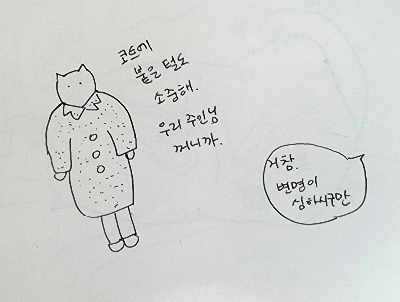 코트에
붙은 털도
소중해.
우리 주인님
꺼니까.
거참.
변명이
심하시구만